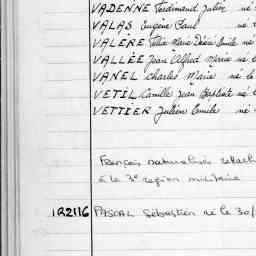 VADENNE Ferdinand Julien né
VALAS Eugène Paul né
VALÈRE Félix Marie Désiré Emile né
VALLÉE Jean Alfred Marie né
VANEL Charles Marie né le
VETIL Camille Jean Baptiste né
VETTIER Julien Emile né
Français naturalisés rattach
à la 3e région militaire
1R2116 PASCAL Sébastien né le 30/